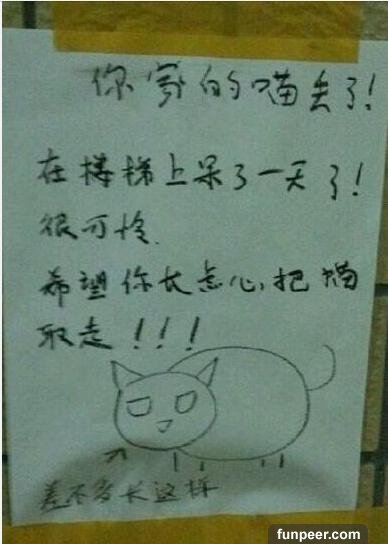 你家的喵丢了!
在楼梯上呆了一天了!
很可怜.
希望你长点心,把喵
取走!!!
差不多长这样
funpeer.com